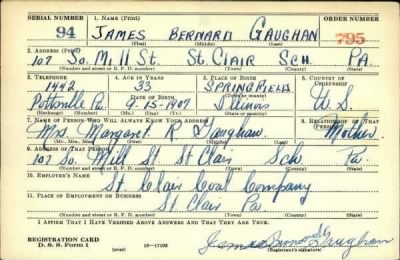 SERIAL NUMBER 1. NAME (Print) ORDER NUMBER
94 JAMES BERNARD GAUGHAN 795
(First) (Middle) (Last)
2. ADDRESS (Print)
107 So. Mill St. St. Clair Sch. Pa.
(Number and street or R. F. D. number) (Town) (County) (State)
3. TELEPHONE 4. AGE IN YEARS 5. PLACE OF BIRTH 6. COUNTRY OF CITIZENSHIP
1442 33 SPRINGFIELD
DATE OF BIRTH
Pottsville Pa. 9-15-1907 Illinois U. S.
(Exchange) (Number) (Mo.) (Day) (Yr.) (State or country)
7. NAME OF PERSON WHO WILL ALWAYS KNOW YOUR ADDRESS 8. RELATIONSHIP OF THAT PERSON
Mrs. Margaret R. Gaughan Mother
(Mr., Mrs., Miss) (First) (Middle) (Last)
9. ADDRESS OF THAT PERSON
107 So Mill St. St Clair Sch Pa.
(Number and street or R. F. D. number) (Town) (County) (State)
10. EMPLOYER'S NAME
St. Clair Coal Company
11. PLACE OF EMPLOYMENT OR BUSINESS
St Clair Pa.
(Number and street or R. F. D. number) (Town) (County) (State)
I AFFIRM THAT I HAVE VERIFIED ABOVE ANSWERS AND THAT THEY ARE TRUE.
REGISTRATION CARD
D. S. S. Form 1 (over) 16-17105 James Gaughan
(Registrant's signature)